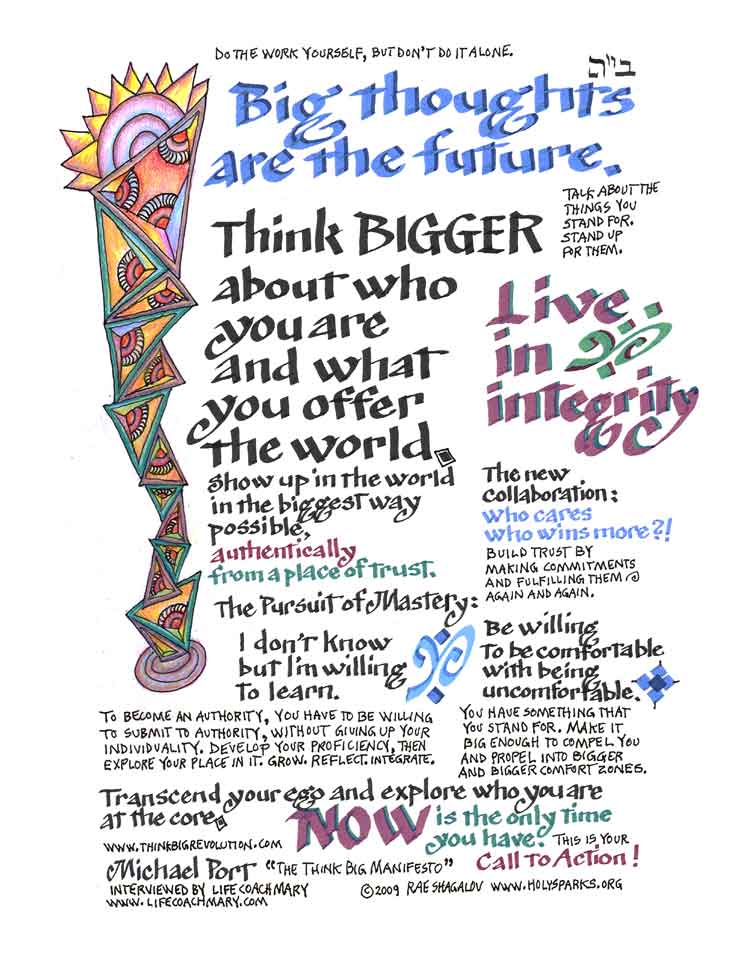 DO THE WORK YOURSELF, BUT DON'T DO IT ALONE.
ב״ה
Big thoughts
are the future.
TALK ABOUT THE
THINGS YOU
STAND FOR.
STAND UP
FOR THEM.
Think BIGGER
about who
you are
and what
you offer
the world.
Live
in
integrity
Show up in the world
in the biggest way
possible,
authentically
from a place of trust.
The new
collaboration:
who cares
who wins more?!
BUILD TRUST BY
MAKING COMMITMENTS
AND FULFILLING THEM
AGAIN AND AGAIN.
The Pursuit of Mastery:
I don't know
but I'm willing
to learn.
Be willing
to be comfortable
with being
uncomfortable.
TO BECOME AN AUTHORITY, YOU HAVE TO BE WILLING
TO SUBMIT TO AUTHORITY, WITHOUT GIVING UP YOUR
INDIVIDUALITY. DEVELOP YOUR PROFICIENCY, THEN
EXPLORE YOUR PLACE IN IT. GROW. REFLECT. INTEGRATE.
YOU HAVE SOMETHING THAT
YOU STAND FOR. MAKE IT
BIG ENOUGH TO COMPEL YOU
AND PROPEL INTO BIGGER
AND BIGGER COMFORT ZONES.
Transcend your ego and explore who you are
at the core.
NOW is the only time
you have. THIS IS YOUR
Call to Action!
WWW.THINKBIGREVOLUTION.COM
Michael Port "THE THINK BIG MANIFESTO"
INTERVIEWED BY LIFE COACH MARY
WWW.LIFECOACHMARY.COM
©2009 RAE SHAGALOV WWW.HOLYSPARKS.ORG